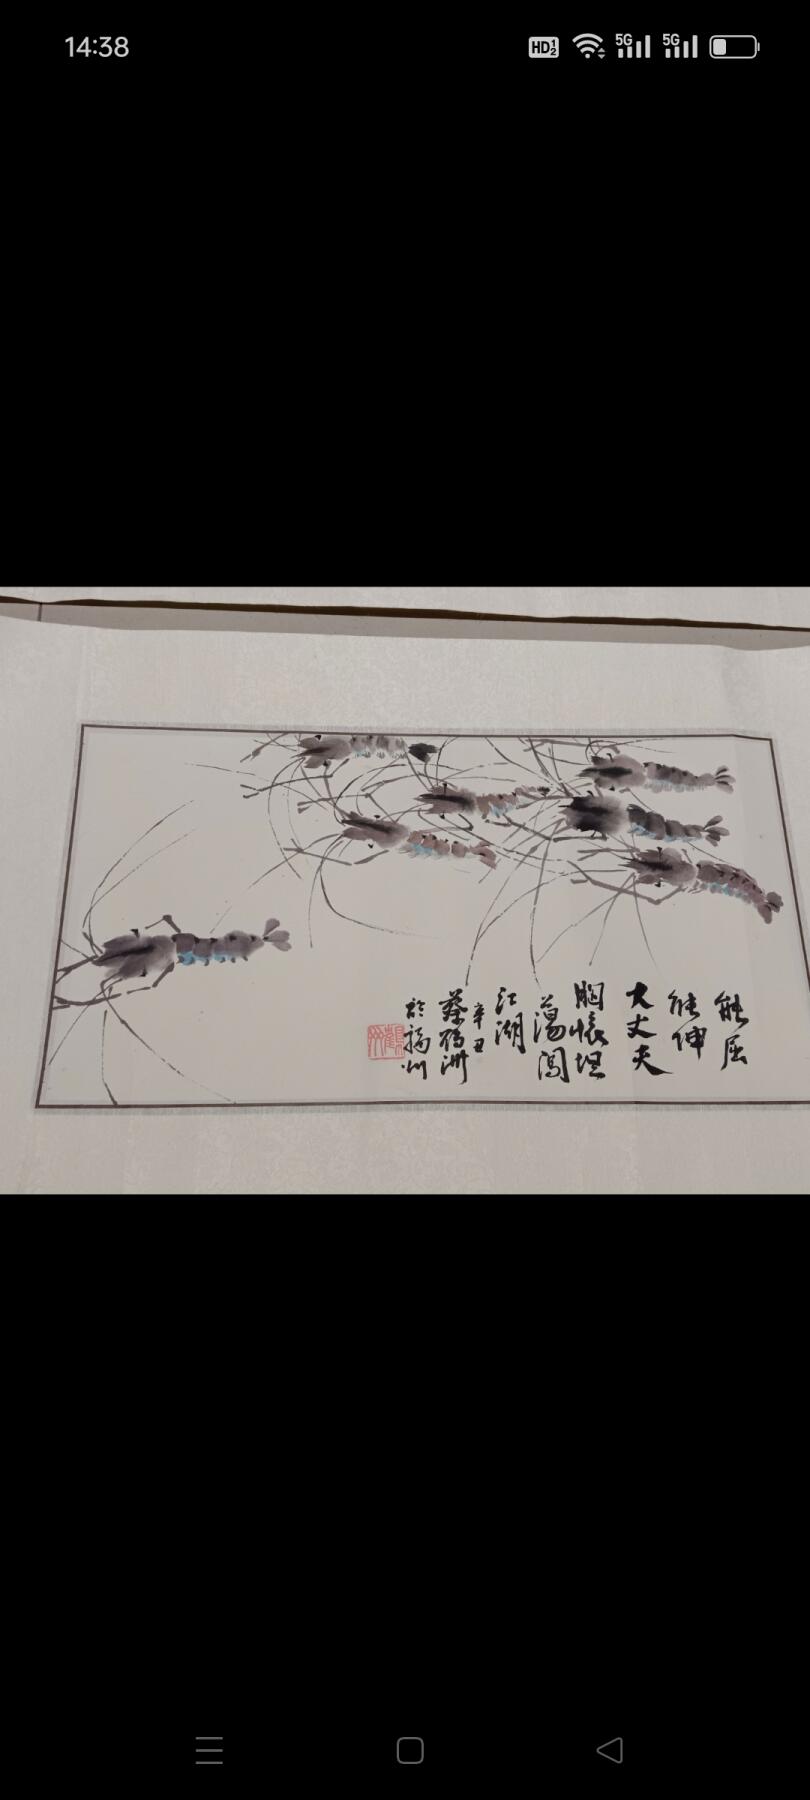 14:38
HD 1 2
5G
5G
能屈
能伸
大丈夫
胸懷坦
蕩闖
江湖
辛丑
蔡鶴洲
於福州